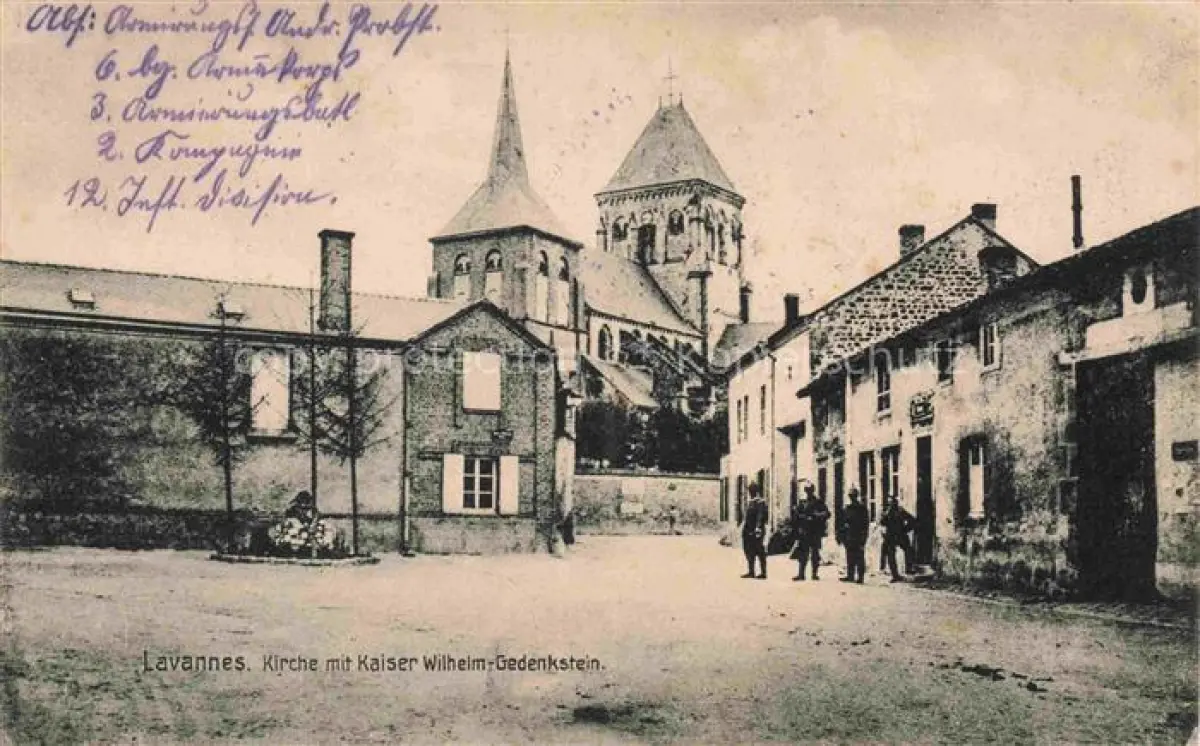 Abs: Armirungss Andr. Probst.
6. bg. Armeekorps
3. Armierungsbatl
2. Kompagnie
12. Inft. Division.
Lavannes. Kirche mit Kaiser Wilhelm-Gedenkstein.